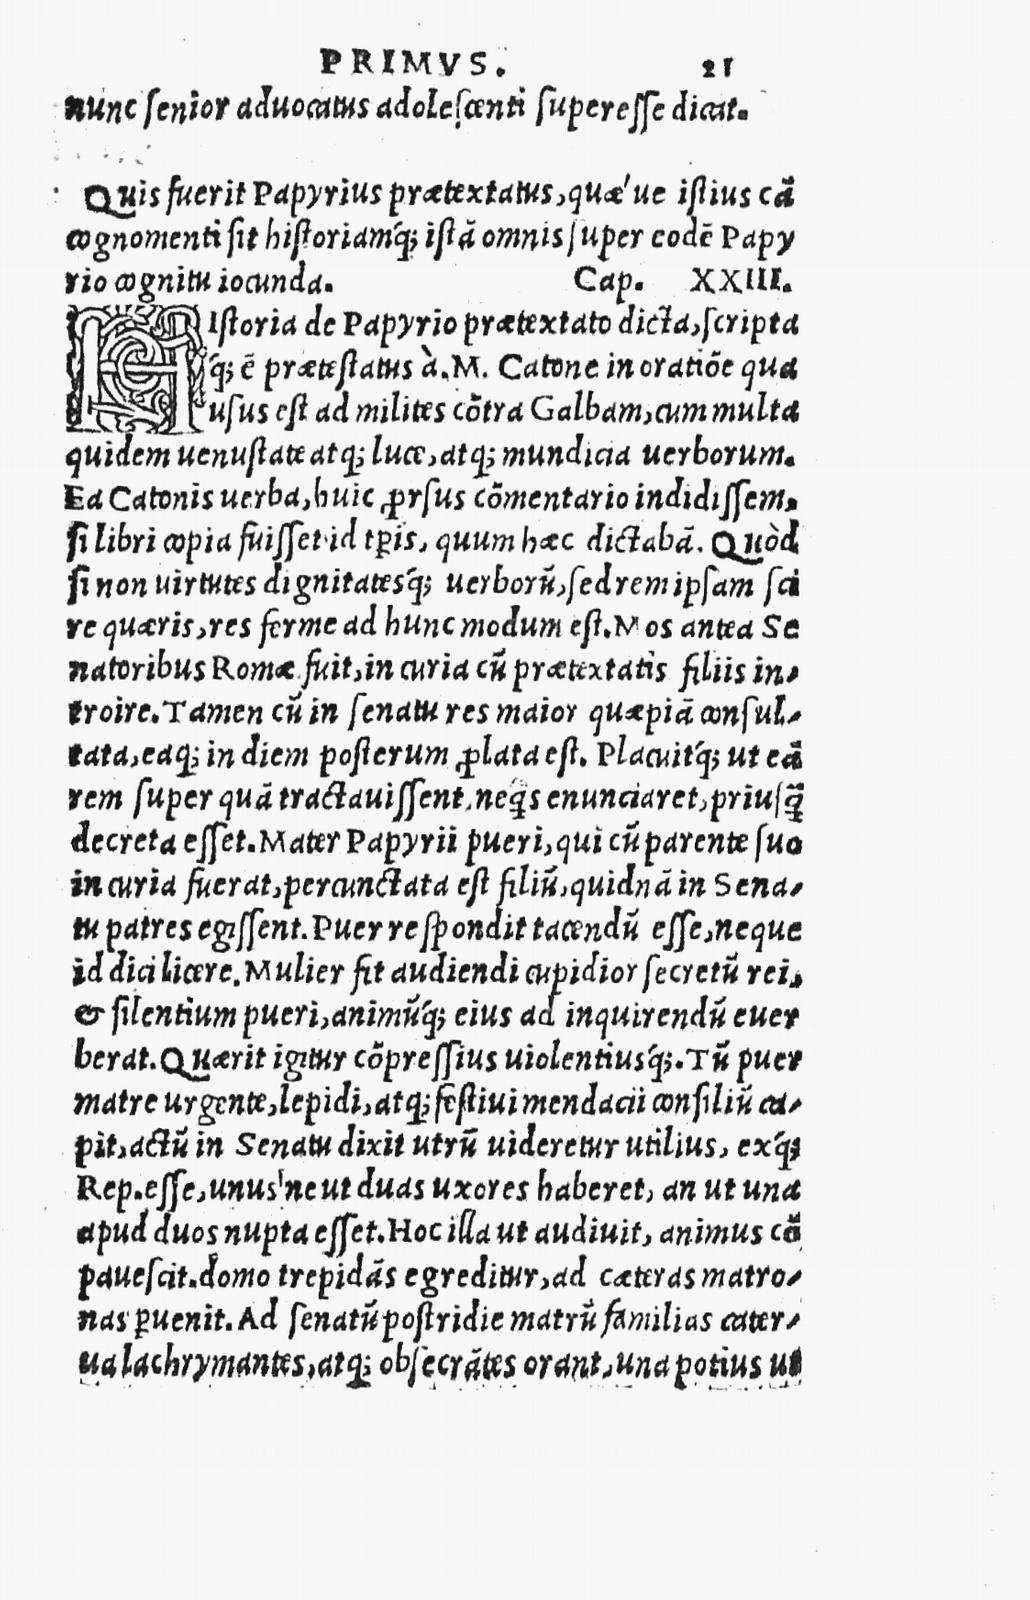 PRIMVS. 21
nunc ſenior aduocatus adoleſcenti ſupereſſe dicat.
Quis fuerit Papyrius prætextatus, quæ'ue iſtius cā
cognomenti ſit hiſtoriamq́; iſtā omnis ſuper eodē Papy
rio cognitu iocunda. Cap. XXIII.
HIſtoria de Papyrio prætextato dicta, ſcripta
q́; ē præteſtatus à. M. Catone in oratiōe qua
uſus eſt ad milites cōtra Galbam, cum multa
quidem uenuſtate atq; luce, atq; mundicia uerborum.
Ea Catonis uerba, huic ꝓrſus cōmentario indidiſſem,
ſi libri copia fuiſſet id tꝑis, quum hæc dictabā. Quòd
ſi non uirtutes dignitatesq́; uerborū, ſed rem ipſam ſci
re quæris, res ferme ad hunc modum eſt. Mos antea Se
natoribus Romæ fuit, in curia cū prætextatis filiis in-
troire. Tamen cū in ſenatu res maior quæpiā conſul-
tata, eaq; in diem poſterum ꝓlata eſt. Placuitq́; ut eā
rem ſuper quā tractauiſſent, neq̇s enunciaret, priuſq̄
decreta eſſet. Mater Papyrii pueri, qui cū parente ſuo
in curia fuerat, percunctata eſt filiū, quidnā in Sena-
tu patres egiſſent. Puer reſpondit tacendū eſſe, neque
id dici licere. Mulier fit audiendi cupidior ſecretū rei,
& ſilentium pueri, animūq́; eius ad inquirendū euer
berat. Quærit igitur cōpreſſius uiolentiusq́;. Tū puer
matre urgente, lepidi, atq; feſtiui mendacii conſiliū ca-
pit, actū in Senatu dixit utrū uideretur utilius, exq́;
Rep. eſſe, unus'ne ut duas uxores haberet, an ut una
apud duos nupta eſſet. Hoc illa ut audiuit, animus cō
paueſcit. domo trepidās egreditur, ad cæteras matro-
nas ꝑuenit. Ad ſenatū poſtridie matrū familias cater-
ua lachrymantes, atq; obſecrātes orant, una potius ut